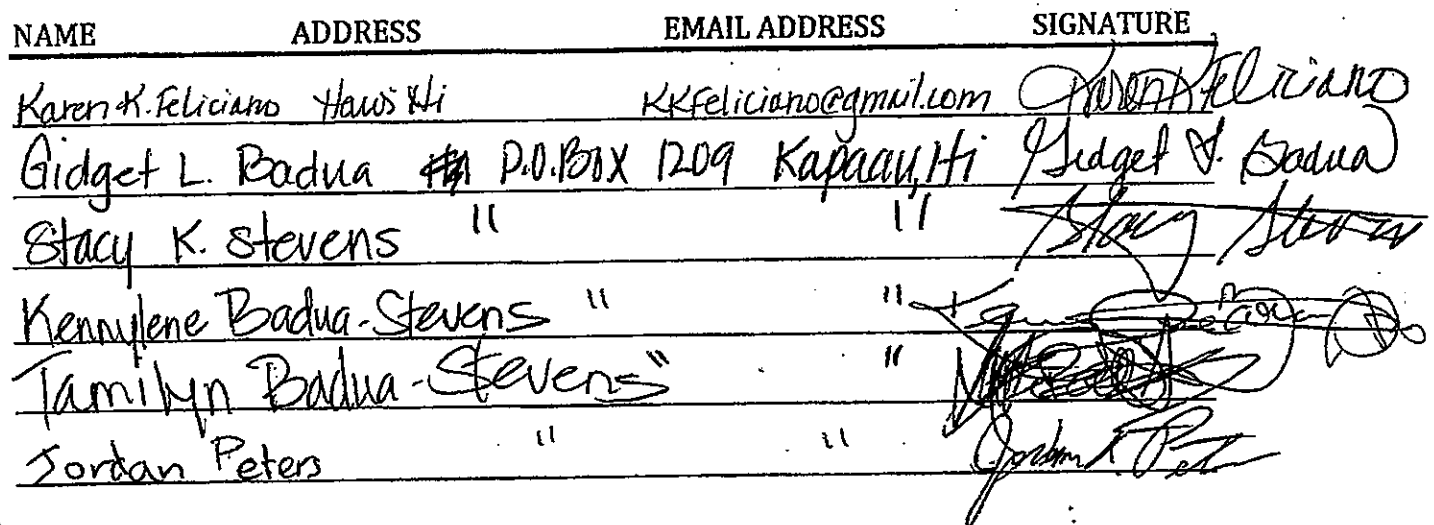 NAME ADDRESS EMAIL ADDRESS SIGNATURE
Karen K. Feliciano Hawi Hi KKFeliciano@gmail.com Karen K Feliciano
Gidget L. Badua P.O. Box 1209 Kapaau, Hi Gidget L. Badua
Stacy K. Stevens " " Stacy Stevens
Kennylene Badua-Stevens " "
Tamilyn Badua-Stevens " "
Jordan Peters " " Jordan K. Pet